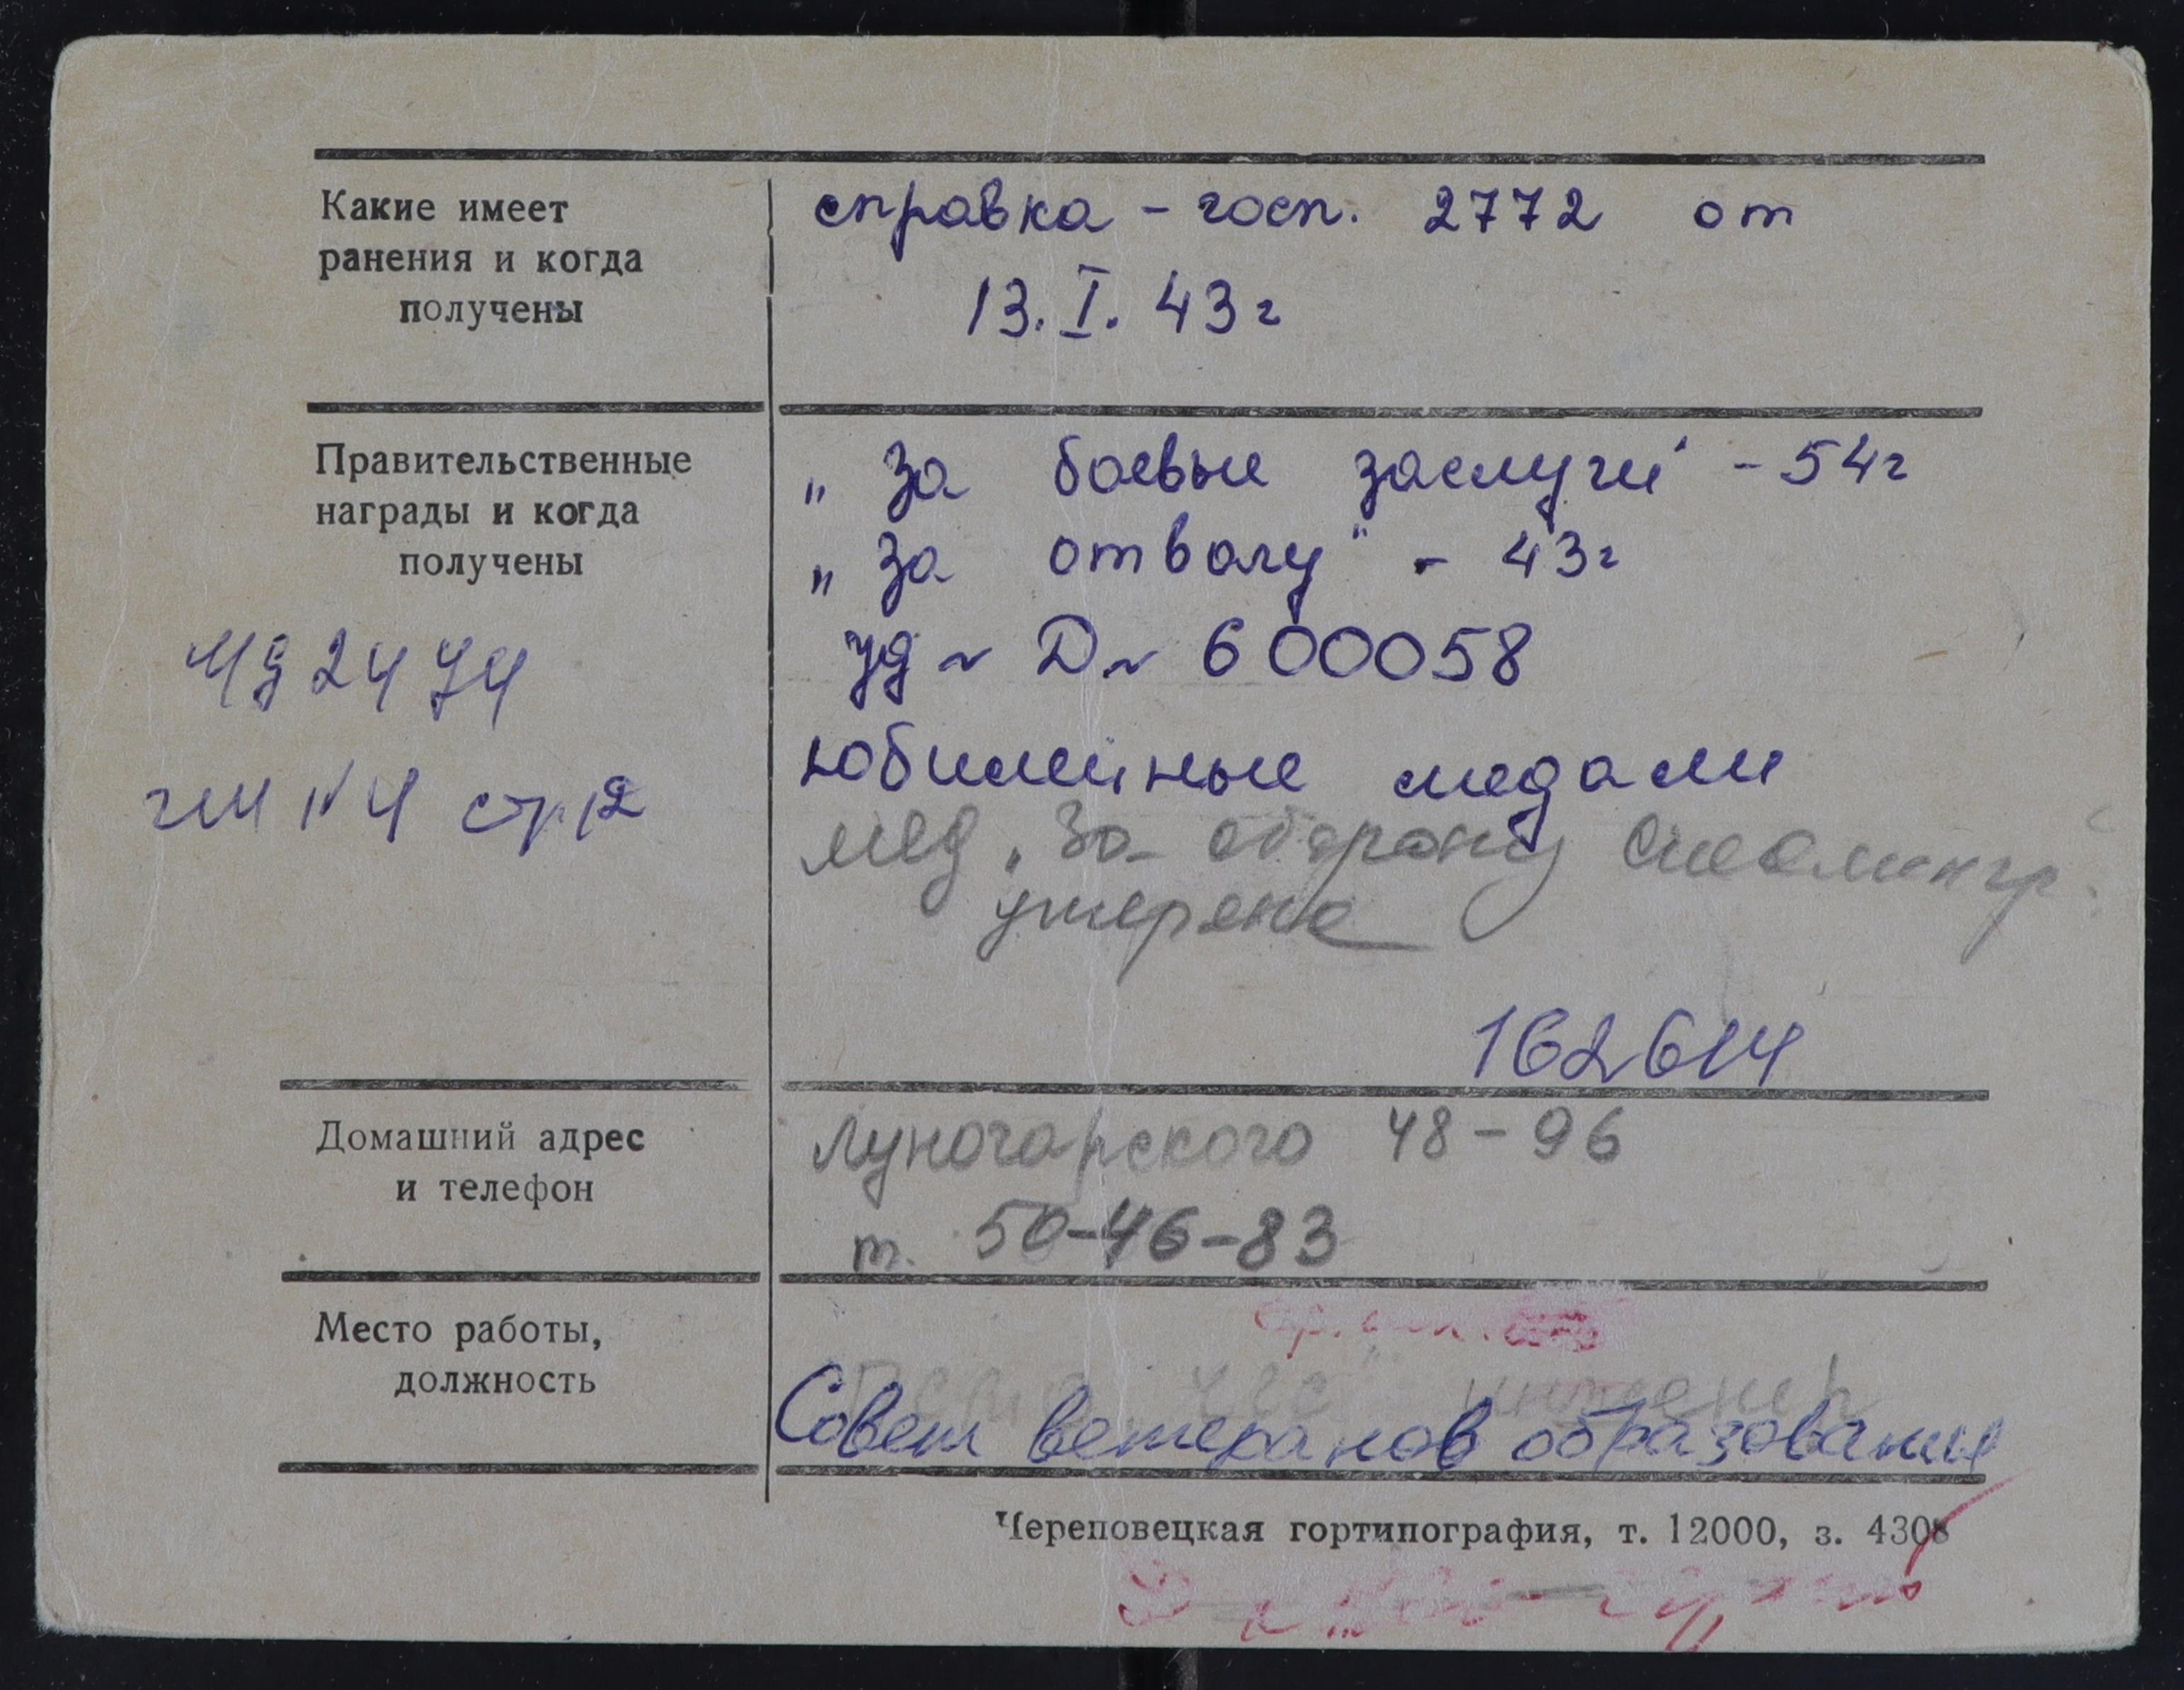 Какие имеет
ранения и когда
получены
справка - госп. 2772 от
13. I. 43 г
Правительственные
награды и когда
получены
„За боевые заслуги" - 54 г
„За отвагу" - 43 г
уд ~ D ~ 600058
юбилейные медали
мед „За оборону Сталингр.
утеряна
2474
N 4 стр 12
162614
Домашний адрес
и телефон
Луначарского 48-96
т. 50-46-83
Место работы,
должность
инженер
Совет ветеранов образования
Череповецкая гортипография, т. 12000, з. 4308